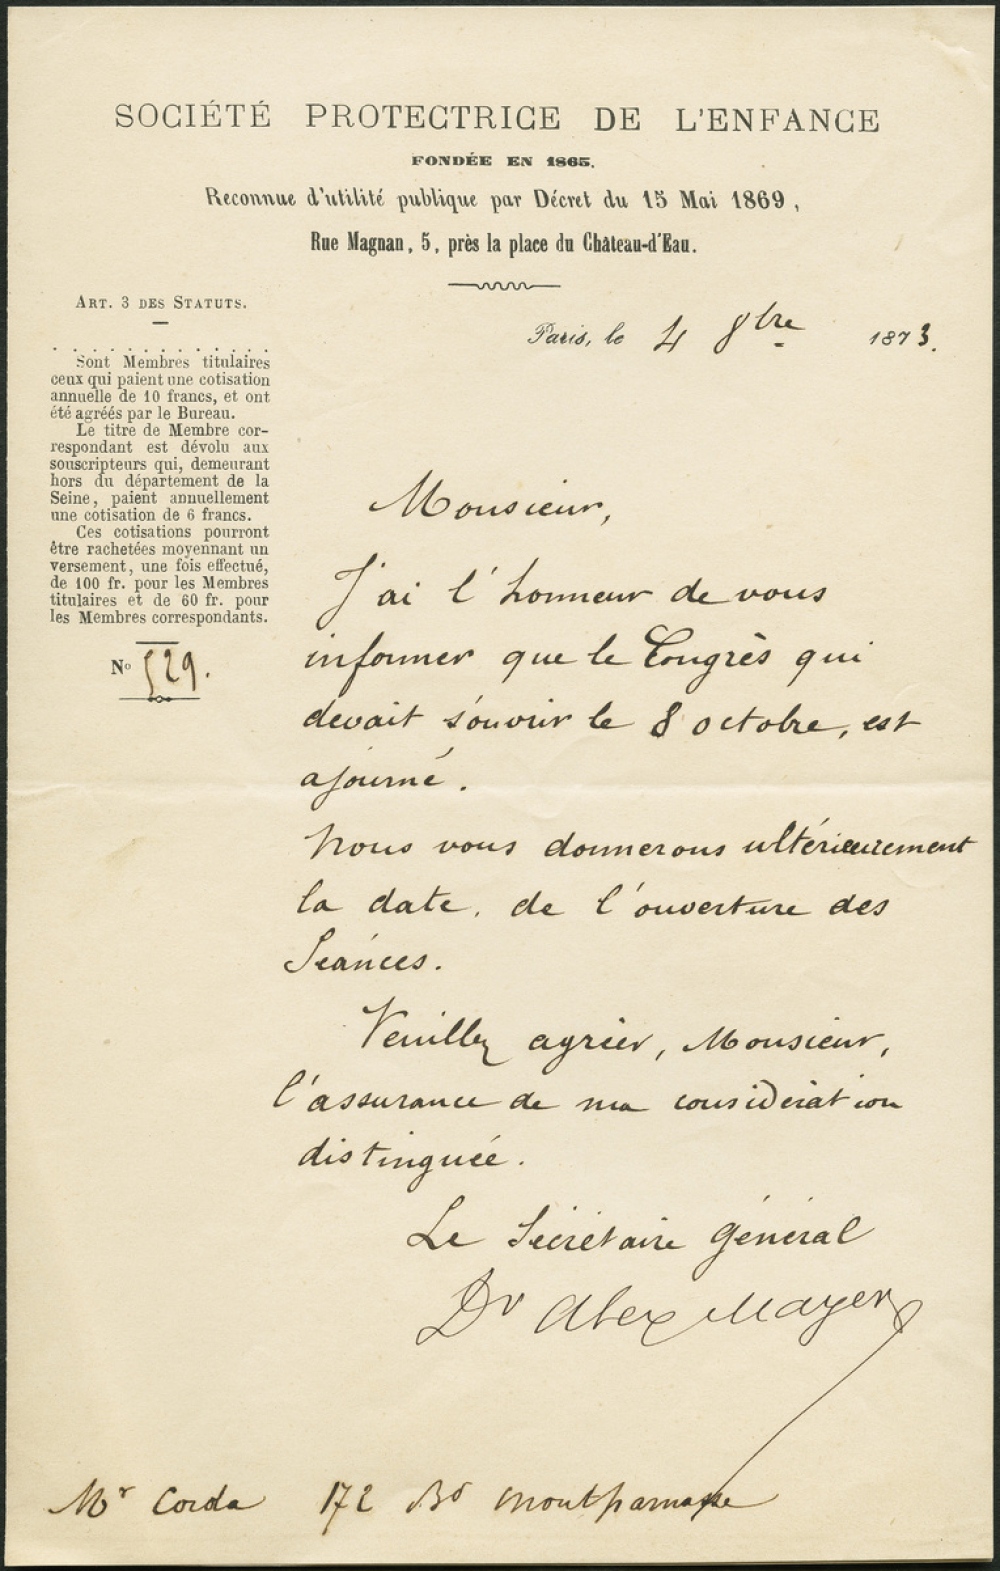 SOCIÉTÉ PROTECTRICE DE L'ENFANCE
FONDÉE EN 1865.
Reconnue d'utilité publique par Décret du 15 Mai 1869,
Rue Magnan, 5, près la place du Château-d'Eau.
ART. 3 DES STATUTS.
. . . . . . . . . . . . .
Sont Membres titulaires
ceux qui paient une cotisation
annuelle de 10 francs, et ont
été agréés par le Bureau.
Le titre de Membre cor-
respondant est dévolu aux
souscripteurs qui, demeurant
hors du département de la
Seine, paient annuellement
une cotisation de 6 francs.
Ces cotisations pourront
être rachetées moyennant un
versement, une fois effectué,
de 100 fr. pour les Membres
titulaires et de 60 fr. pour
les Membres correspondants.
No 529.
Paris, le 4 8bre 1873.
Monsieur,
J'ai l'honneur de vous
informer que le Congrès qui
devait s'ouvrir le 8 octobre, est
ajourné.
Nous vous donnerons ultérieurement
la date, de l'ouverture des
Séances.
Veuillez agréer, Monsieur,
l'assurance de ma considération
distinguée.
Le Sécrétaire Général
Dr Alex Mayer
Mr Corda 172 Bd Montparnasse